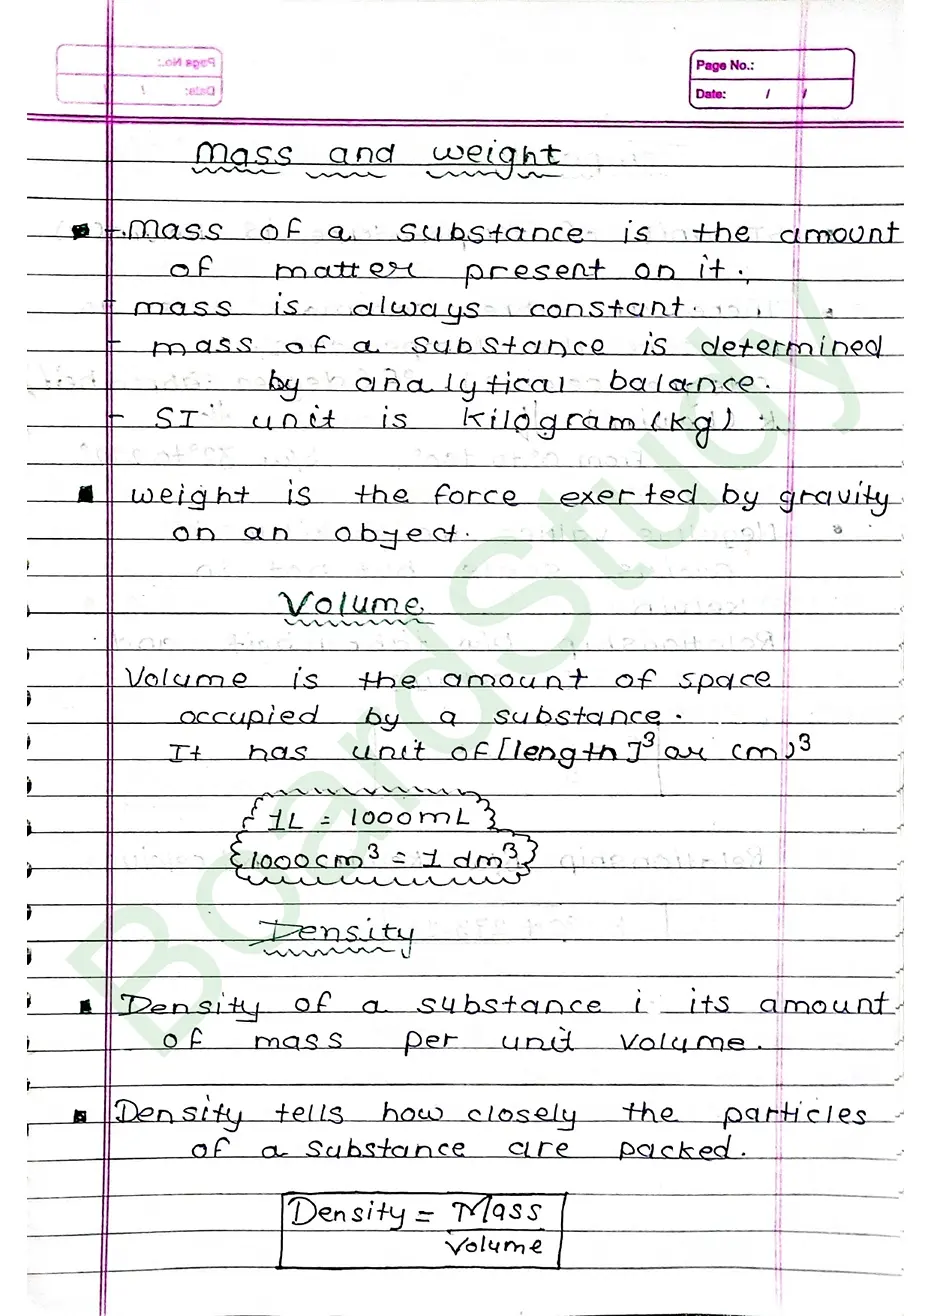 Page No.:
Date: / /
Mass and weight
- Mass of a substance is the amount
of matter present on it.
- mass is always constant.
- mass of a substance is determined
by analytical balance.
- SI unit is kilogram (kg)
weight is the force exerted by gravity
on an object.
Volume
Volume is the amount of space
occupied by a substance.
It has unit of [length]³ or (m)³
1L = 1000mL
1000cm³ = 1 dm³
Density
Density of a substance i its amount
of mass per unit volume.
Density tells how closely the particles
of a substance are packed.
Density = Mass
Volume
BoardStudy